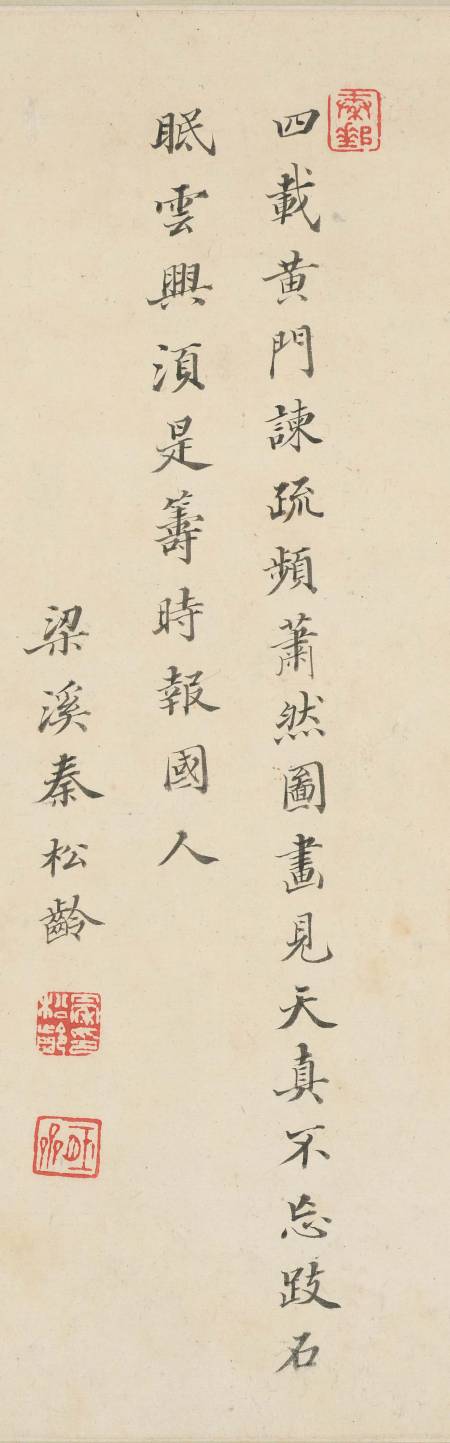 四載黄門諫疏頻蕭然圖畫見天真不忘跂石
眠雲興湏是籌時報國人
梁溪秦松齡
秦印松齡